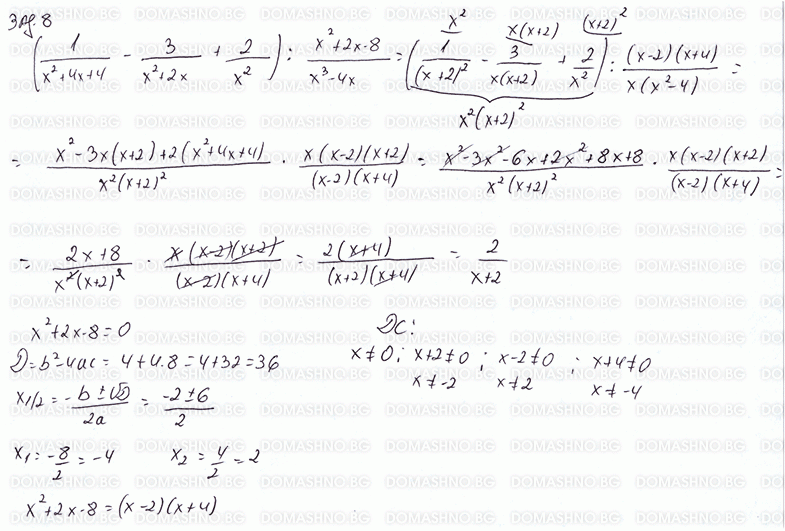 Зад. 8
(1/(x²+4x+4) - 3/(x²+2x) + 2/x²) : (x²+2x-8)/(x³-4x) = (1/(x+2)² - 3/(x(x+2)) + 2/x²) : ((x-2)(x+4))/(x(x²-4)) =
x² x(x+2) (x+2)²
x²(x+2)²
= (x²-3x(x+2)+2(x²+4x+4))/(x²(x+2)²) · (x(x-2)(x+2))/((x-2)(x+4)) = (x²-3x²-6x+2x²+8x+8)/(x²(x+2)²) · (x(x-2)(x+2))/((x-2)(x+4)) =
= (2x+8)/(x²(x+2)²) · (x(x-2)(x+2))/((x-2)(x+4)) = (2(x+4))/((x+2)(x+4)) = 2/(x+2)
x²+2x-8=0
D=b²-4ac = 4+4.8=4+32=36
x1/2 = (-b±√D)/2a = (-2±6)/2
x₁=-8/2=-4 x₂=4/2=2
x²+2x-8=(x-2)(x+4)
ДС:
x≠0; x+2≠0; x-2≠0; x+4≠0
x≠-2 x≠2 x≠-4
DOMASHNO.BG